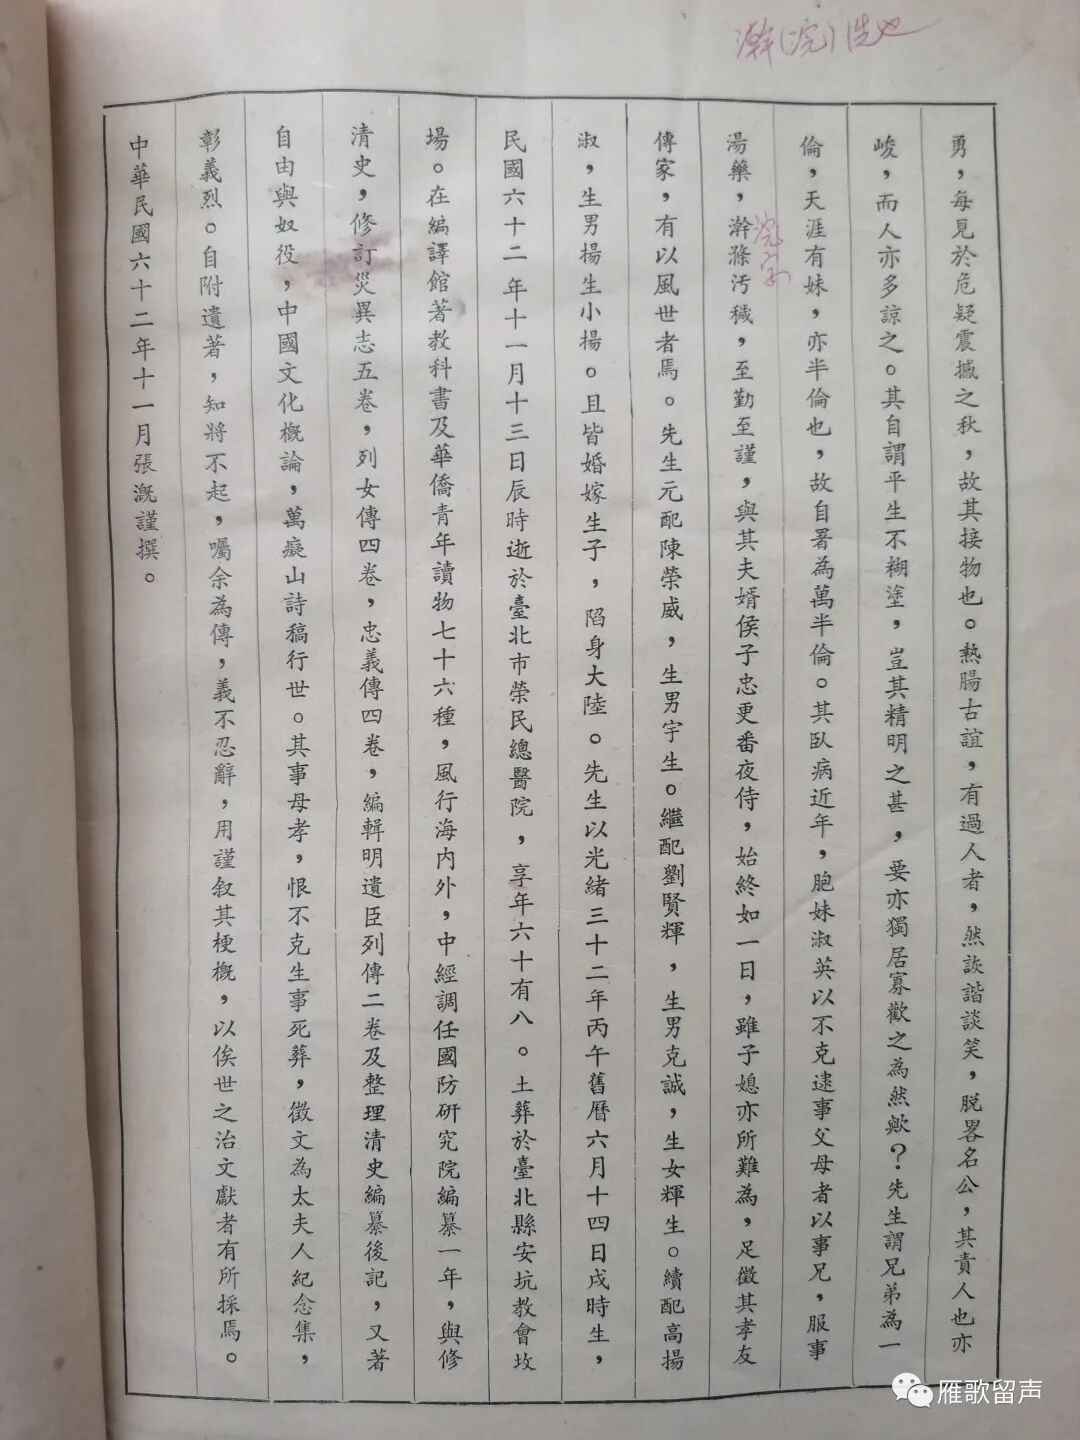 瀚(浣)洗也
勇，每見於危疑震撼之秋，故其接物也。熱腸古誼，有過人者，然詼諧談笑，脫畧名公，其責人也亦
峻，而人亦多諒之。其自謂平生不糊塗，豈其精明之甚，要亦獨居寡歡之為然歟？先生謂兄弟為一
倫，天涯有妹，亦半倫也，故自署為萬半倫。其臥病近年，胞妹淑英以不克逮事父母者以事兄，服事
湯藥，澣滌污穢，至勤至謹，與其夫婿侯子忠更番夜侍，始終如一日，雖子媳亦所難為，足徵其孝友
浣字
傳家，有以風世者焉。先生元配陳榮威，生男宇生。繼配劉賢輝，生男克誠，生女輝生。續配高揚
淑，生男揚生小揚。且皆婚嫁生子，陷身大陸。先生以光緒三十二年丙午舊曆六月十四日戌時生，
民國六十二年十一月十三日辰時逝於臺北市榮民總醫院，享年六十有八。土葬於臺北縣安坑教會坟
場。在編譯館著教科書及華僑青年讀物七十六種，風行海內外，中經調任國防研究院編纂一年，與修
清史，修訂災異志五卷，列女傳四卷，忠義傳四卷，編輯明遺臣列傳二卷及整理清史編纂後記，又著
自由與奴役，中國文化概論，萬癡山詩稿行世。其事母孝，恨不克生事死葬，徵文為太夫人紀念集，
彰義烈。自附遺著，知將不起，囑余為傳，義不忍辭，用謹叙其梗概，以俟世之治文獻者有所採焉。
中華民國六十二年十一月張溉謹撰。
雁歌留声